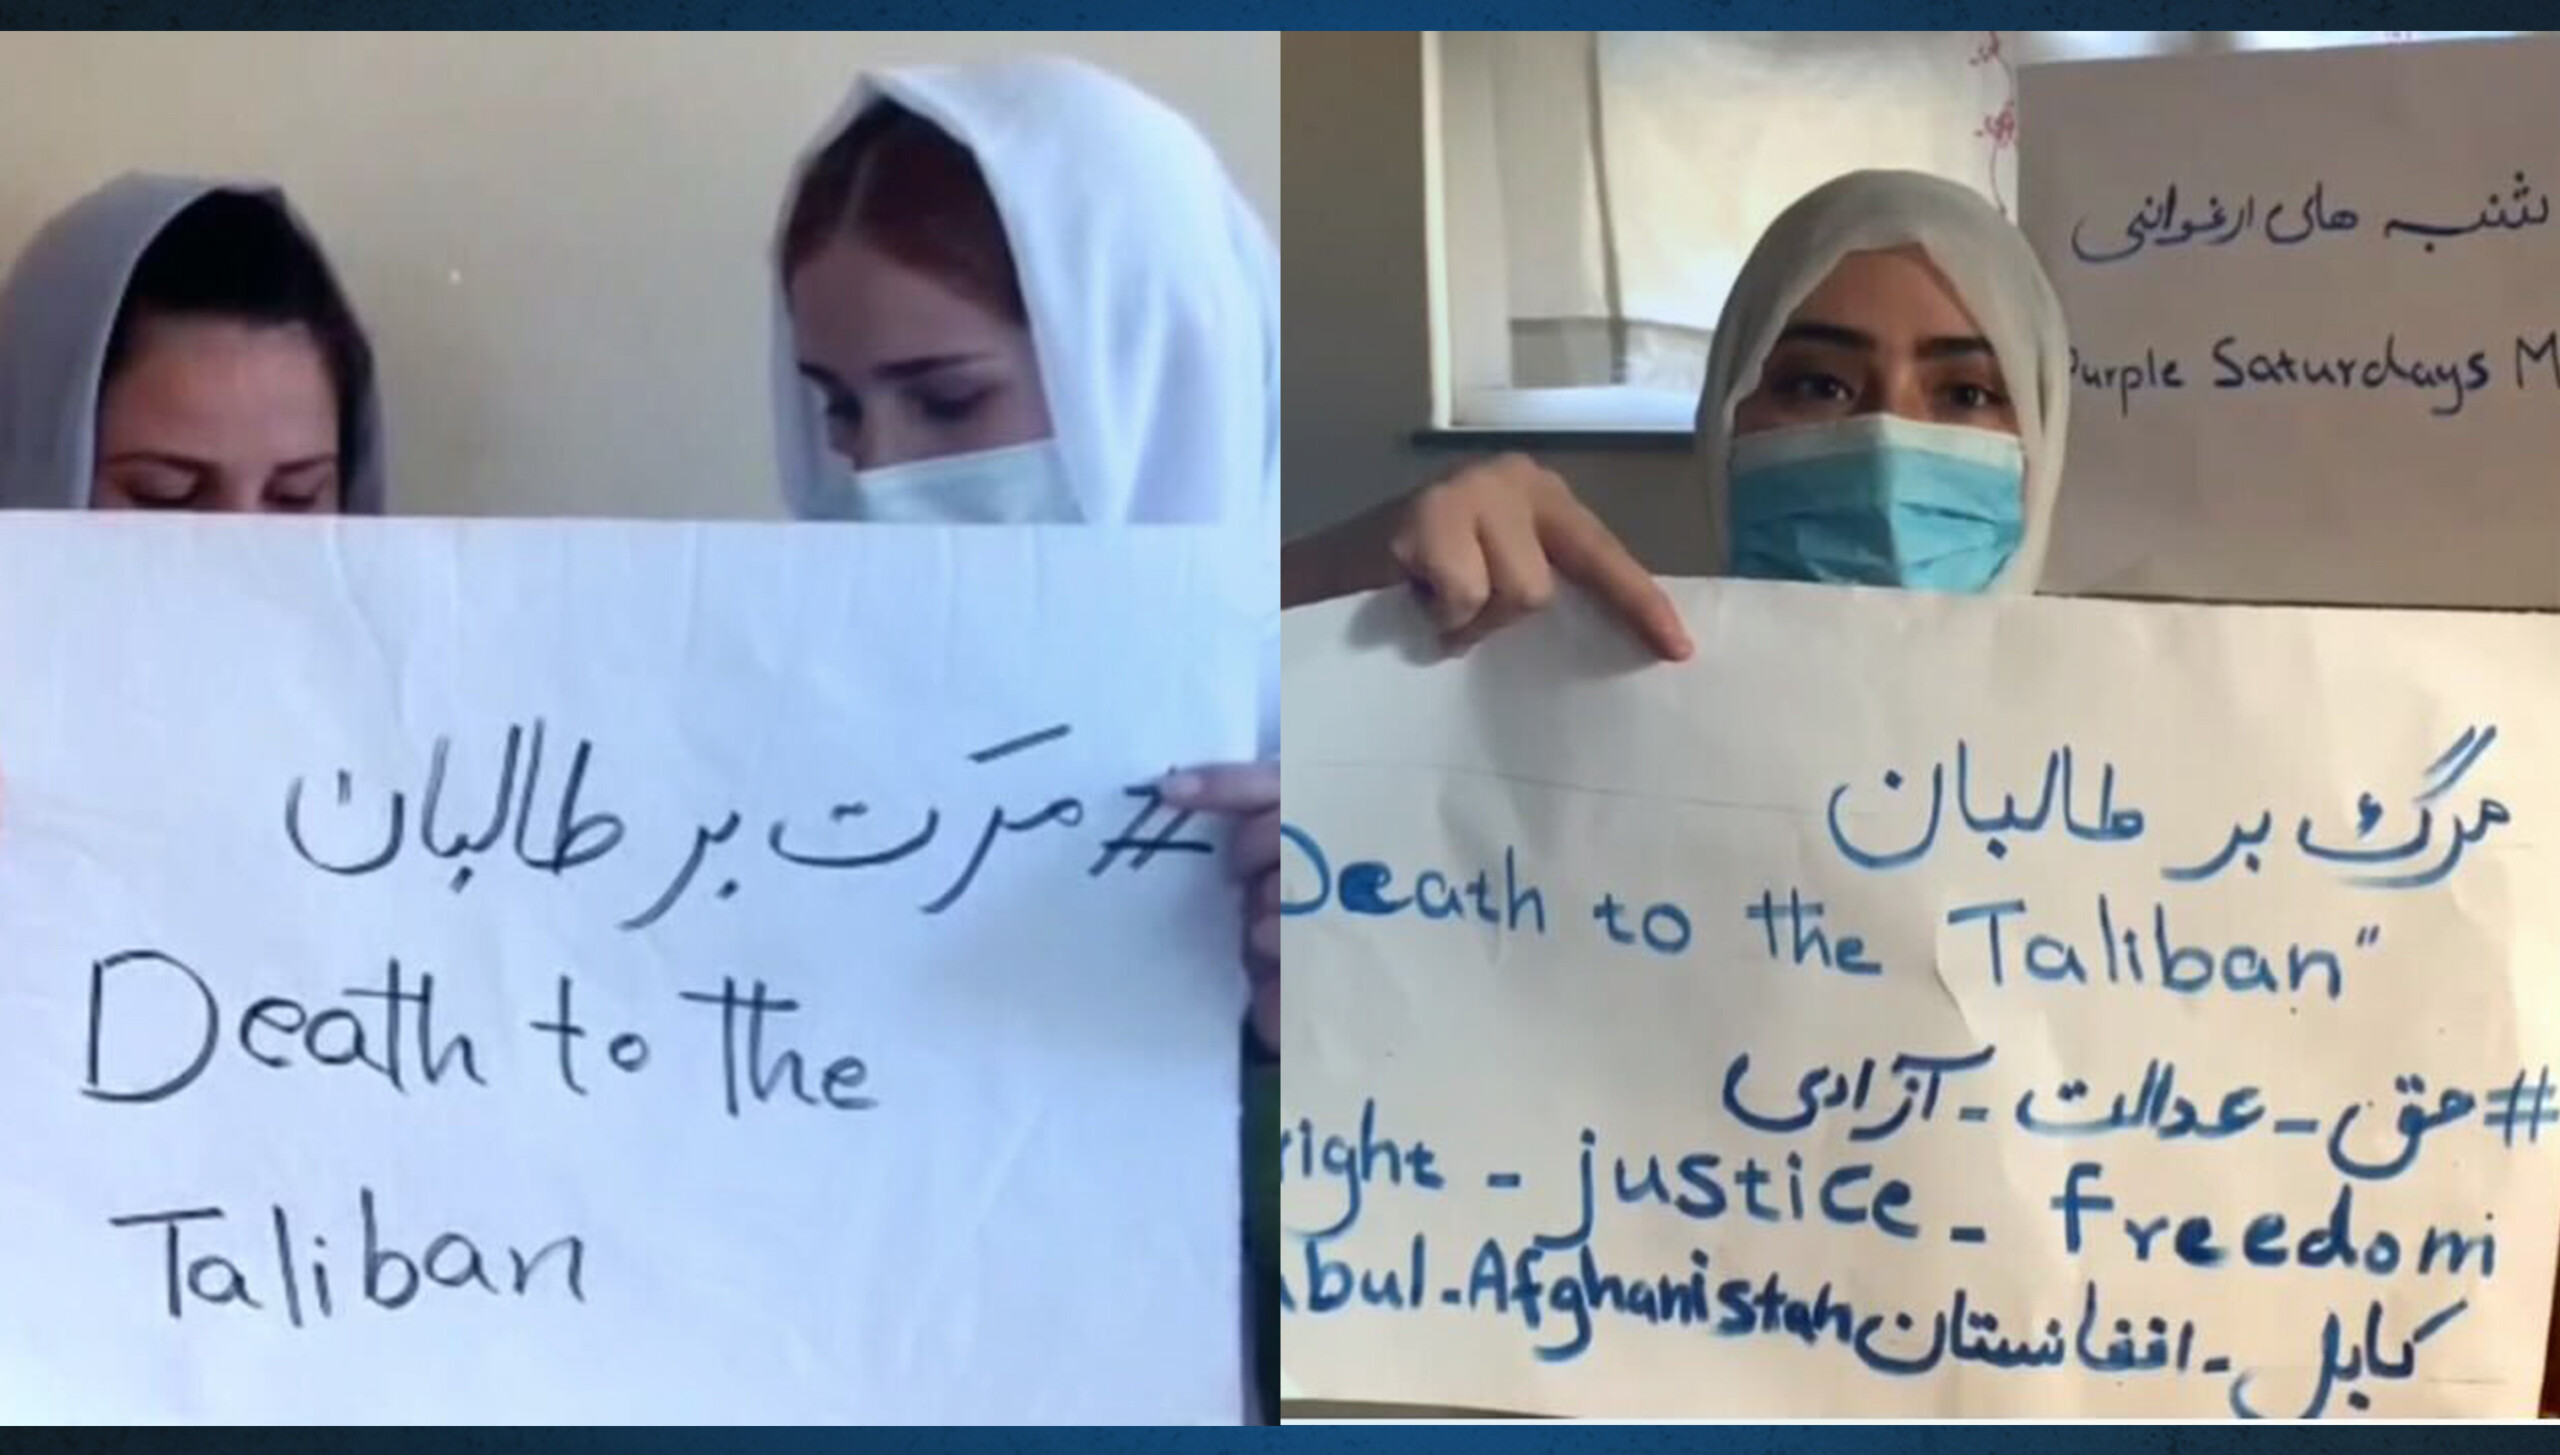 #مرَت بر طالبان
Death to the
Taliban
شنبه های ارغوانی
Purple Saturdays M
مرگ بر طالبان
Death to the Taliban"
#حق - عدالت - آزادی
right - justice - freedom
abul - Afghanistan کابل - افغانستان